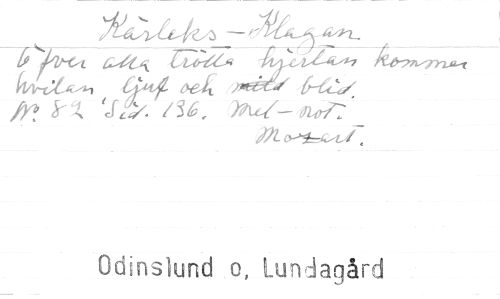 Kärleks-Klagan.
Öfver alla trötta hjertan kommer
hvilan, ljuf och mild blid.
No. 82 Sid. 136. Mel-not.
Mozart.
Odinslund o, Lundagård